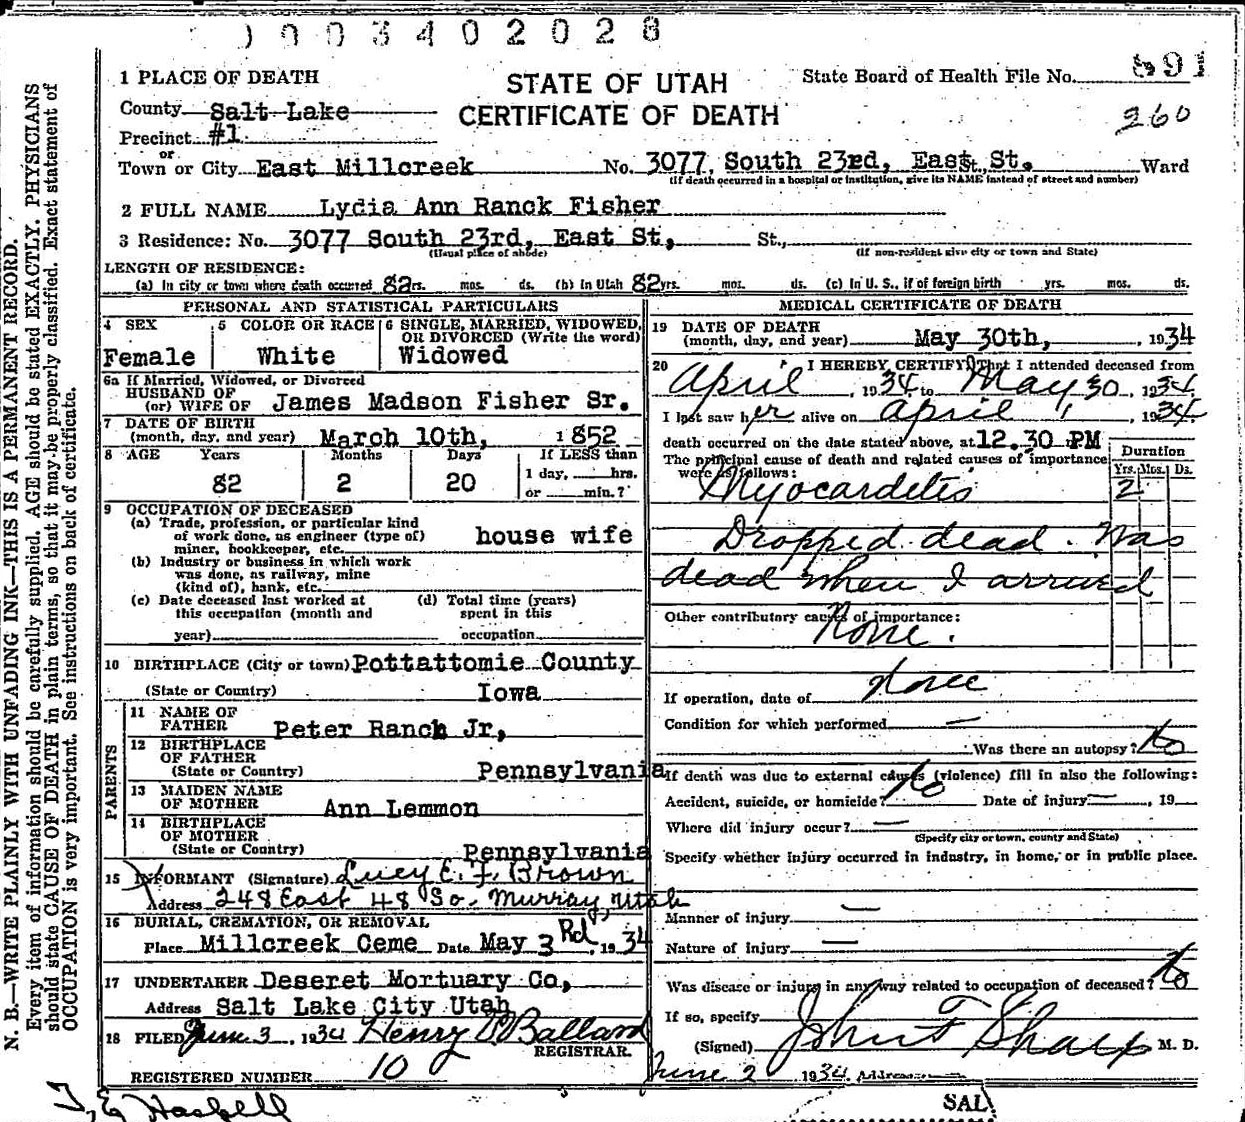 0003402028
1 PLACE OF DEATH
STATE OF UTAH
CERTIFICATE OF DEATH
State Board of Health File No. 891
260
County Salt Lake
Precinct #1
or
Town or City East Millcreek No. 3077, South 23rd, East, St. Ward
(If death occurred in a hospital or institution, give its NAME instead of street and number)
2 FULL NAME Lydia Ann Ranck Fisher
3 Residence: No. 3077 South 23rd, East St, St.,
(Usual place of abode) (If non-resident give city or town and State)
LENGTH OF RESIDENCE:
(a) In city or town where death occurred 82 yrs. mos. ds. (b) In Utah 82 yrs. mos. ds. (c) In U. S., if of foreign birth yrs. mos. ds.
PERSONAL AND STATISTICAL PARTICULARS
4 SEX
Female
5 COLOR OR RACE
White
6 SINGLE, MARRIED, WIDOWED,
OR DIVORCED (Write the word)
Widowed
6a If Married, Widowed, or Divorced
HUSBAND OF
(or) WIFE OF James Madson Fisher Sr.
7 DATE OF BIRTH
(month, day, and year) March 10th, 1852
8 AGE Years Months Days If LESS than
82 2 20 1 day, hrs.
or min.?
9 OCCUPATION OF DECEASED
(a) Trade, profession, or particular kind
of work done, as engineer (type of)
miner, bookkeeper, etc. house wife
(b) Industry or business in which work
was done, as railway, mine
(kind of), bank, etc.
(c) Date deceased last worked at
this occupation (month and
year)
(d) Total time (years)
spent in this
occupation
10 BIRTHPLACE (City or town) Pottattomie County
(State or Country) Iowa
PARENTS
11 NAME OF
FATHER Peter Ranck Jr,
12 BIRTHPLACE
OF FATHER
(State or Country) Pennsylvania
13 MAIDEN NAME
OF MOTHER Ann Lemmon
14 BIRTHPLACE
OF MOTHER
(State or Country) Pennsylvania
15 INFORMANT (Signature) Lucy E. F. Brown
Address 248 East 48 So. Murray Utah
16 BURIAL, CREMATION, OR REMOVAL
Place Millcreek Ceme Date May 3 Rd, 1934
17 UNDERTAKER Deseret Mortuary Co,
Address Salt Lake City Utah
18 FILED June 3, 1934 Henry Ballard
REGISTRAR.
REGISTERED NUMBER 10
MEDICAL CERTIFICATE OF DEATH
19 DATE OF DEATH
(month, day, and year) May 30th, , 1934
20 I HEREBY CERTIFY, That I attended deceased from
April , 1934 to May 30, 1934
I last saw her alive on April 1, 1934.
death occurred on the date stated above, at 12.30 PM
The principal cause of death and related causes of importance
were as follows:
Duration
Yrs. Mos. Ds.
Myocardetis 2
Dropped dead. Was
dead when I arrived
Other contributory causes of importance:
None.
If operation, date of None
Condition for which performed —
Was there an autopsy? No
If death was due to external causes (violence) fill in also the following:
Accident, suicide, or homicide? No Date of injury — , 19
Where did injury occur? —
(Specify city or town, county and State)
Specify whether injury occurred in industry, in home, or in public place.
—
Manner of injury
Nature of injury —
Was disease or injury in any way related to occupation of deceased? No
If so, specify
(Signed) John F Sharp M. D.
June 2 1934. Address
SAL
T. E. Haskell
N. B.—WRITE PLAINLY WITH UNFADING INK—THIS IS A PERMANENT RECORD.
Every item of information should be carefully supplied. AGE should be stated EXACTLY. PHYSICIANS
should state CAUSE OF DEATH in plain terms, so that it may be properly classified. Exact statement of
OCCUPATION is very important. See instructions on back of certificate.